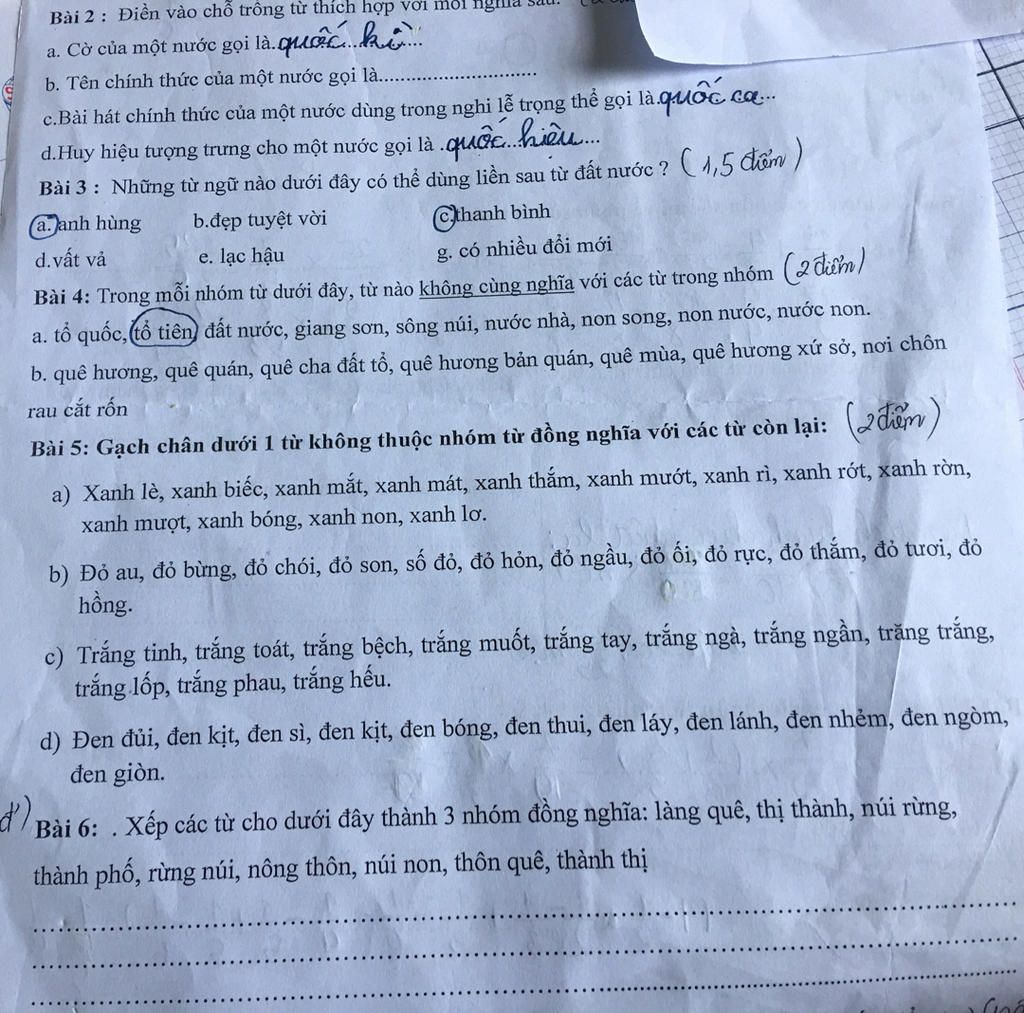 Bài 2 : Điền vào chỗ trống từ thích hợp với mỗi nghĩa sau.
a. Cờ của một nước gọi là.quốc..kì...
b. Tên chính thức của một nước gọi là..............................
c.Bài hát chính thức của một nước dùng trong nghi lễ trọng thể gọi là.quốc ca...
d.Huy hiệu tượng trưng cho một nước gọi là .quốc..hiệu...
Bài 3 : Những từ ngữ nào dưới đây có thể dùng liền sau từ đất nước ? (1,5 điểm)
a. anh hùng b.đẹp tuyệt vời c.thanh bình
d.vất vả e. lạc hậu g. có nhiều đổi mới
Bài 4: Trong mỗi nhóm từ dưới đây, từ nào không cùng nghĩa với các từ trong nhóm (2 điểm)
a. tổ quốc, tổ tiên, đất nước, giang sơn, sông núi, nước nhà, non song, non nước, nước non.
b. quê hương, quê quán, quê cha đất tổ, quê hương bản quán, quê mùa, quê hương xứ sở, nơi chôn
rau cắt rốn
Bài 5: Gạch chân dưới 1 từ không thuộc nhóm từ đồng nghĩa với các từ còn lại: (2 điểm)
a) Xanh lè, xanh biếc, xanh mắt, xanh mát, xanh thắm, xanh mướt, xanh rì, xanh rớt, xanh rờn,
xanh mượt, xanh bóng, xanh non, xanh lơ.
b) Đỏ au, đỏ bừng, đỏ chói, đỏ son, số đỏ, đỏ hỏn, đỏ ngầu, đỏ ối, đỏ rực, đỏ thắm, đỏ tươi, đỏ
hồng.
c) Trắng tinh, trắng toát, trắng bệch, trắng muốt, trắng tay, trắng ngà, trắng ngần, trăng trắng,
trắng lốp, trắng phau, trắng hếu.
d) Đen đủi, đen kịt, đen sì, đen kịt, đen bóng, đen thui, đen láy, đen lánh, đen nhẻm, đen ngòm,
đen giòn.
đ) Bài 6: . Xếp các từ cho dưới đây thành 3 nhóm đồng nghĩa: làng quê, thị thành, núi rừng,
thành phố, rừng núi, nông thôn, núi non, thôn quê, thành thị